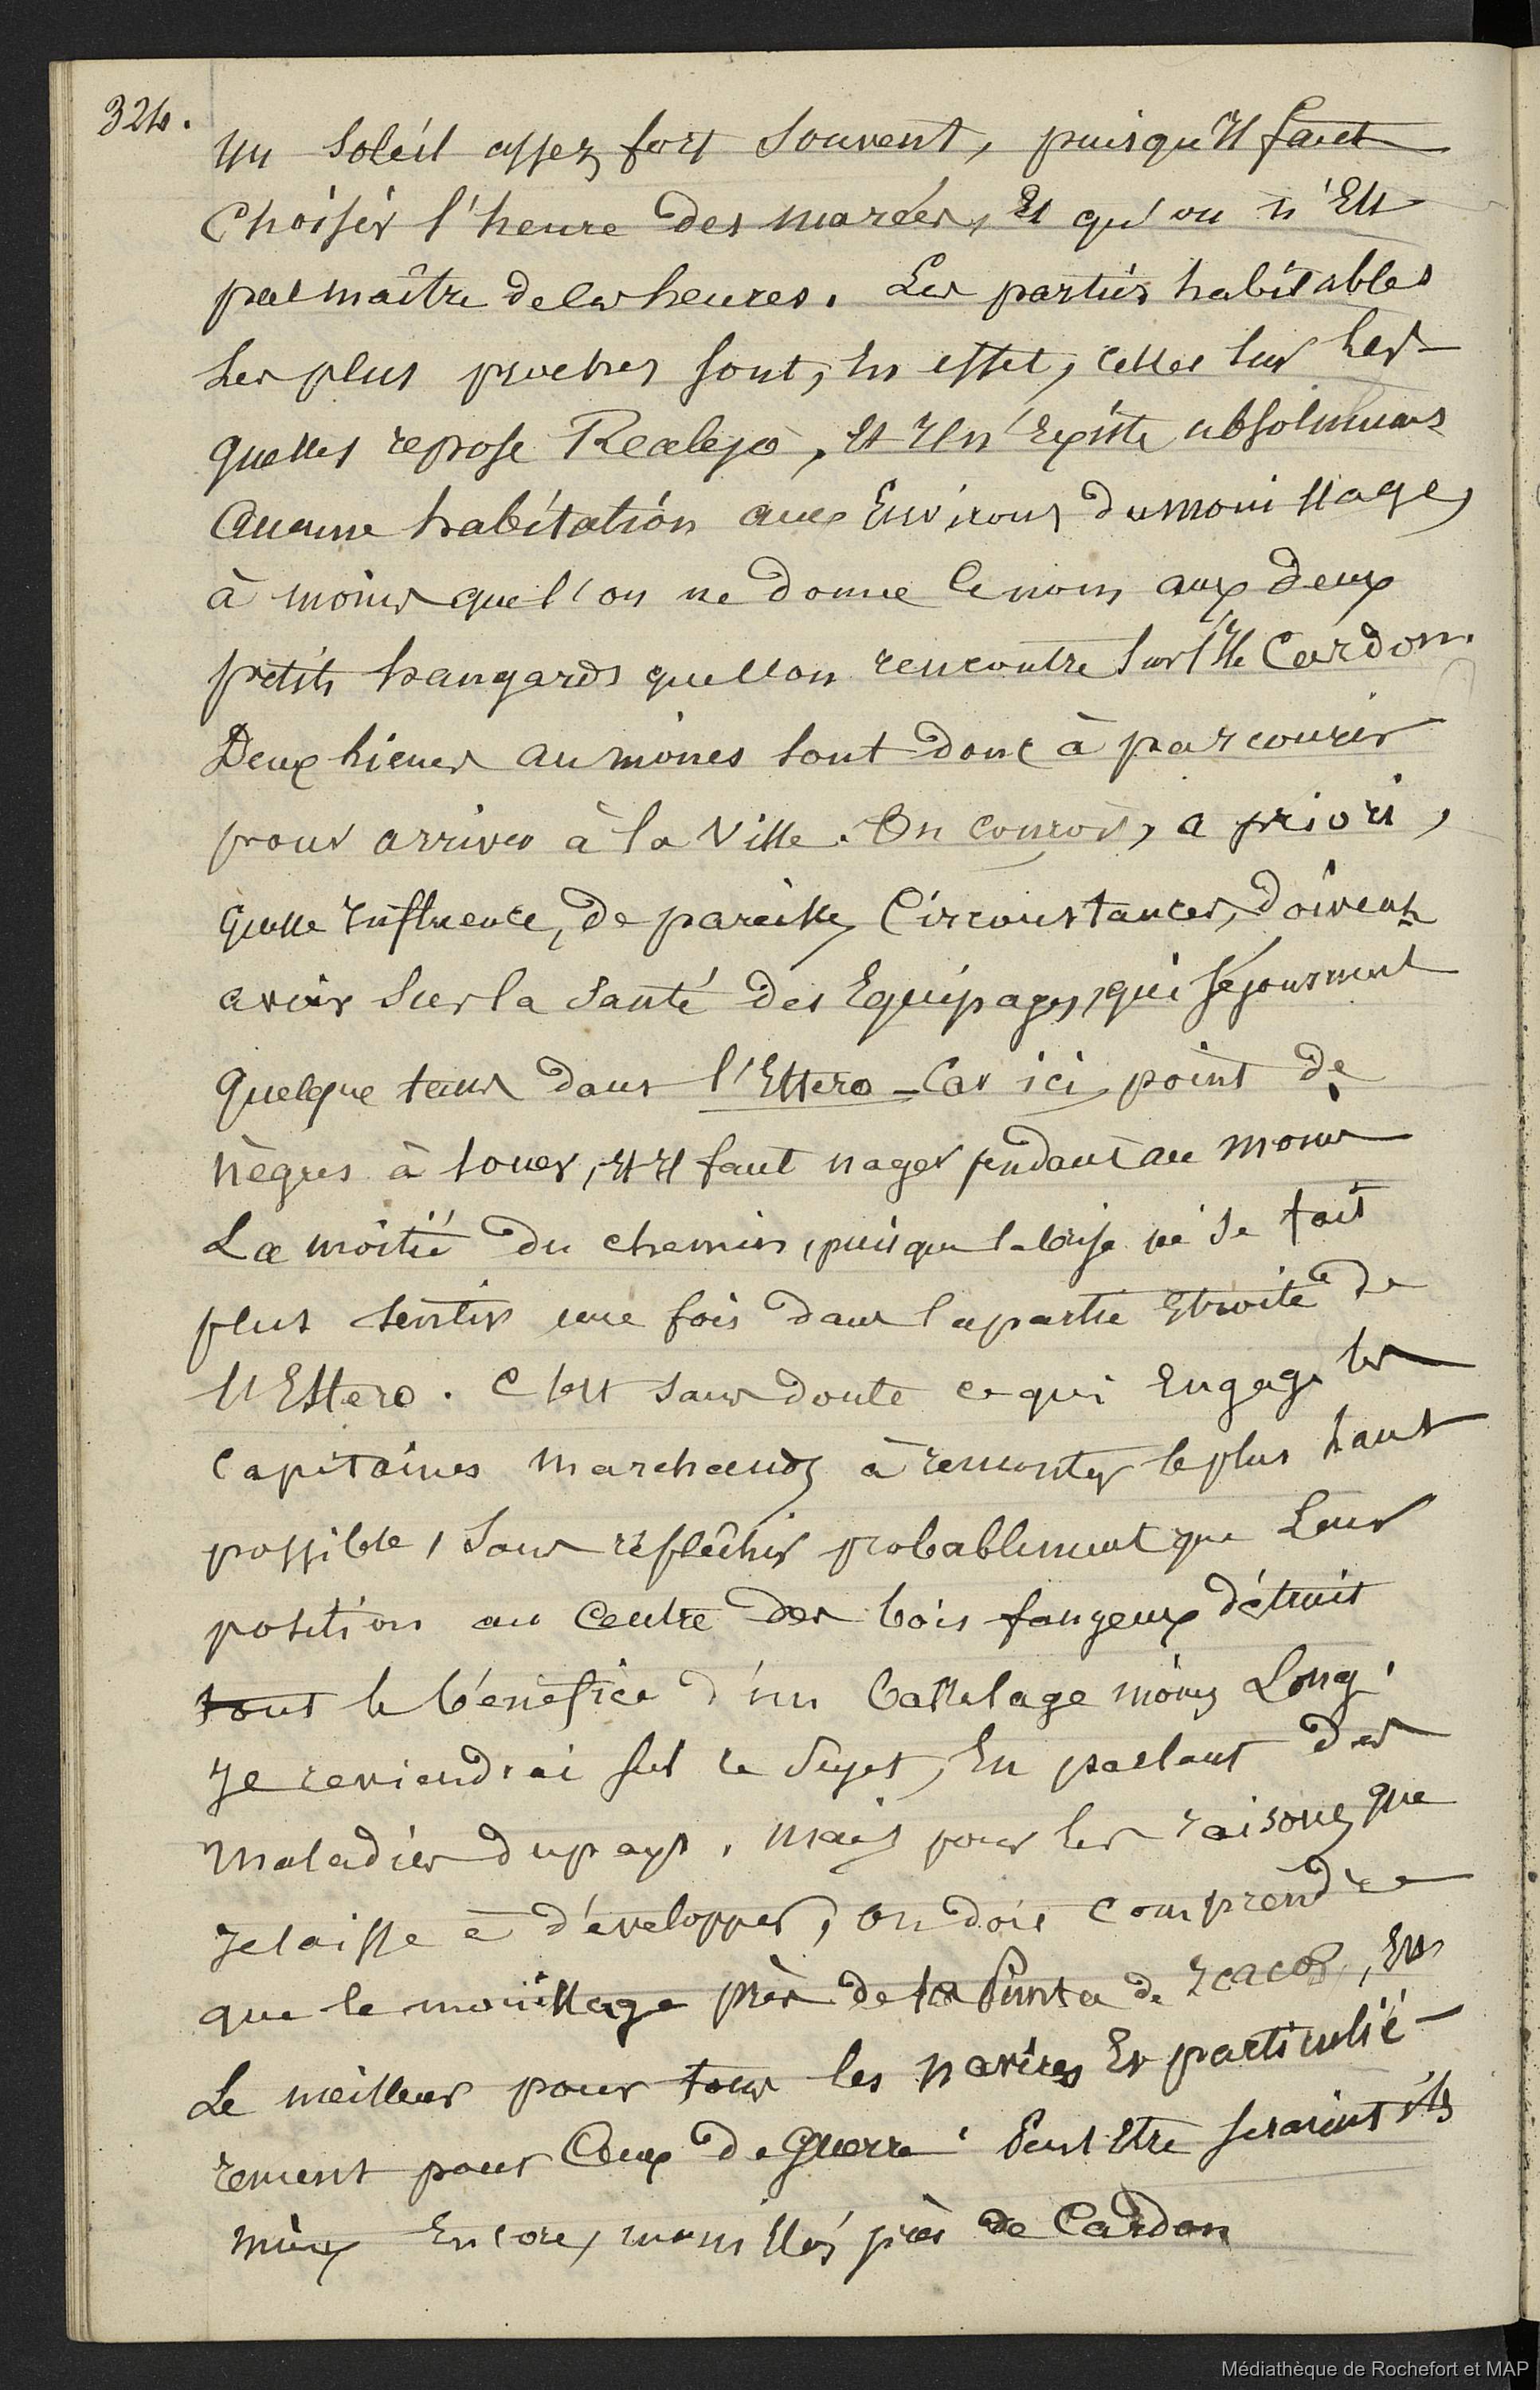 324.
un soleil assez fort souvent, puisqu'il faut
choisir l'heure des marées, et qu'on n'est
pas maître de les heures. Les parties habitables
les plus proches sont, en effet, celles sur les-
quelles repose Realejo, et il n'existe absolument
aucune habitation aux environs du mouillage,
à moins que l'on ne donne ce nom aux deux
petits hangards que l'on rencontre sur l'île Cardon.
Deux lieues au moins sont donc à parcourir
pour arriver à la ville. On conçoit, a priori,
quelle influence, de pareilles circonstances, doivent
avoir sur la santé des équipages, qui séjournent
quelque tems dans l'Estero - Car ici, point de
nègres à louer, et il faut nager pendant au moins
La moitié du chemin, puisque la brise ne se fait
plus sentir une fois dans la partie étroite de
l'Estero. C'est sans doute ce qui engage les
capitaines marchands à remonter le plus haut
possible, sans réfléchir probablement que leur
position au centre des bois fangeux détruit
tout le bénéfice d'un battelage moins long.
Je reviendrai sur ce sujet, en parlant des
maladies du pays, mais pour les raisons que
je laisse à développer, on doit comprendre
que le mouillage près de la Punta de Icacos, est
Le meilleur pour tous les navires et particuliè-
rement pour ceux de guerre. Peut être seraient ils
mieux encore, mouillés près de Cardon
Médiathèque de Rochefort et MAP